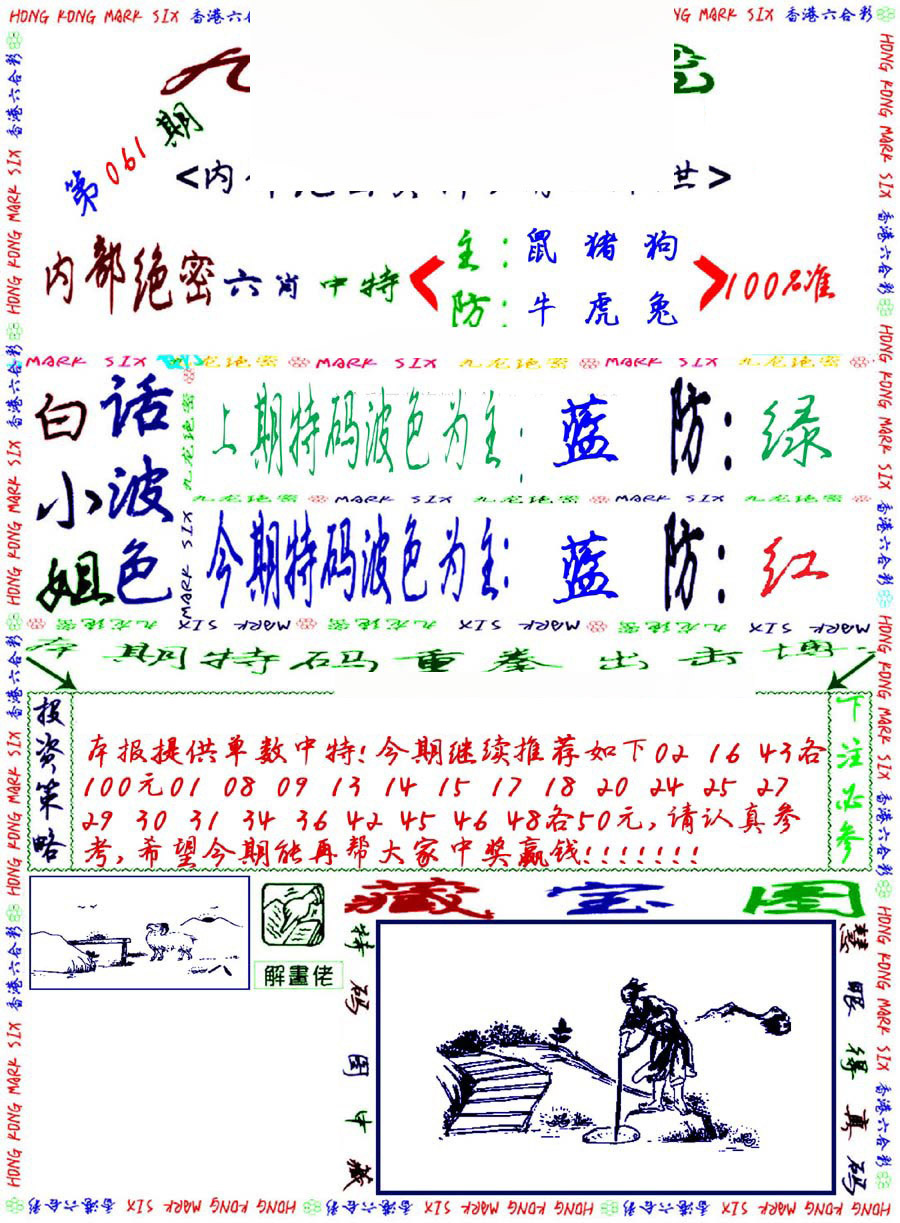 HONG KONG MARK SIX 香港六合彩
第061期
内部绝密六肖中特
主:鼠 猪 狗
防:牛 虎 兔
100%准
MARK SIX 九龙绝密 MARK SIX 九龙绝密 MARK SIX 九龙绝密
白话
小波
姐色
上期特码波色为主: 蓝 防: 绿
九龙绝密 MARK SIX 九龙绝密 MARK SIX 九龙绝密
今期特码波色为主: 蓝 防: 红
MARK SIX 九龙绝密 MARK SIX 九龙绝密 MARK SIX 九龙绝密
本期特码重拳出击
投资策略
本报提供单数中特!今期继续推荐如下02 16 43各
100元01 08 09 13 14 15 17 18 20 24 25 27
29 30 31 34 36 42 45 46 48各50元,请认真参
考,希望今期能再帮大家中奖赢钱!!!!!!!
下注必参
解畫佬
藏宝图
特码图中藏
慧眼得真码
HONG KONG MARK SIX 香港六合彩